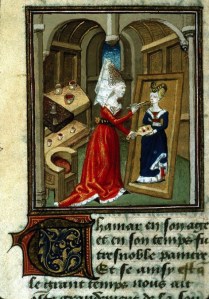 Thamar en son age
et en son temps fu
tresnoble paintre
Et se ainsy est
le grant temps nous ait